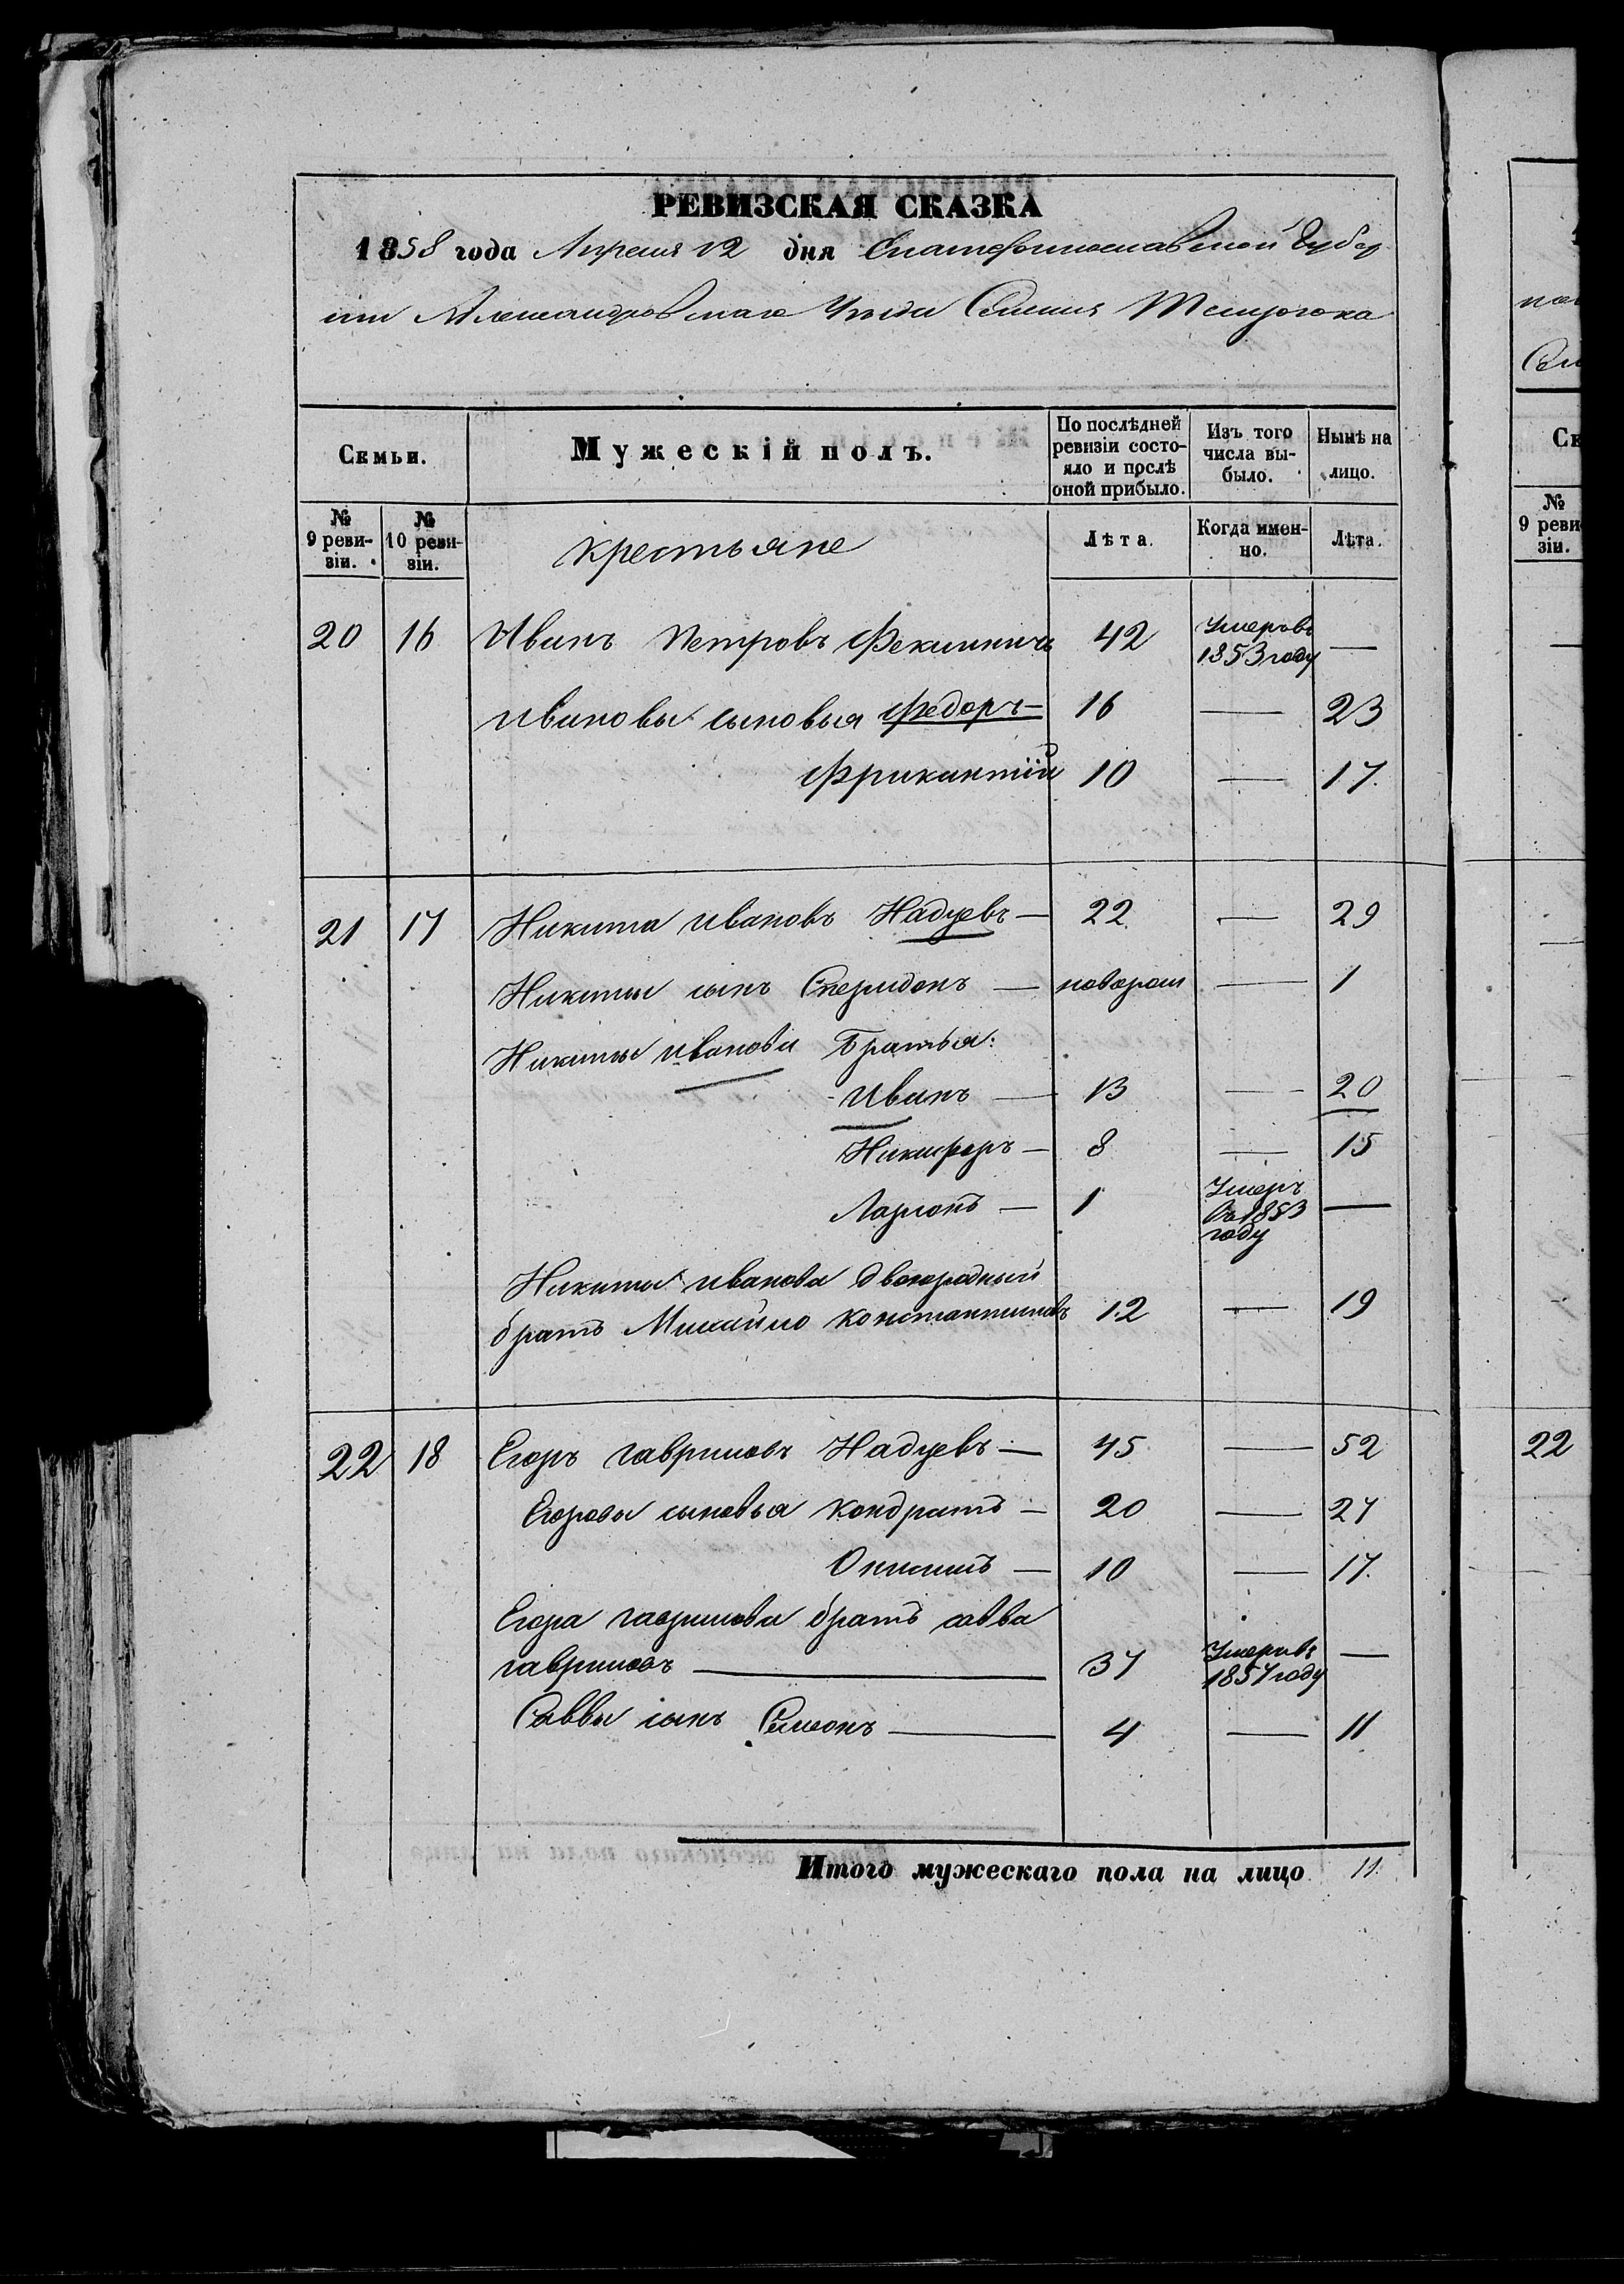 РЕВИЗСКАЯ СКАЗКА
1858 года Апреля 12 дня Екатеринославской Губер
нии Александровскаго Уезда Селения Темрюка
Семьи. Мужескій полъ. По послѣдней ревизіи состояло и послѣ оной прибыло. Изъ того числа выбыло. Нынѣ на лицо.
№ 9 ревизіи. № 10 ревизіи. крестьяне Лѣта. Когда именно. Лѣта.
20 16 Иванъ Петровъ 42 Умеръ въ 1853 году —
Ивановы сыновья Федоръ — 16 — 23
10 — 17.
21 17 Никита Ивановъ Надуевъ — 22 — 29
Никиты сынъ Спиридонъ — новорож — 1
Никиты Иванова Братья:
Иванъ — 13 — 20
Никифоръ — 8 — 15
Ларионъ — 1 Умеръ въ 1853 году —
Никиты Иванова двоюродный
братъ Михайло Константиновъ 12 — 19
22 18 Егоръ Гавриловъ Надуевъ — 45 — 52
Егоровы сыновья Кондратъ — 20 — 27
Онисимъ — 10 — 17.
Егора Гаврилова братъ Савва
Гавриловъ — 37 Умеръ въ 1857 году —
Саввы сынъ Симонъ — 4 — 11
Итого мужескаго пола на лицо 11.
№ 9 ревизіи.
22